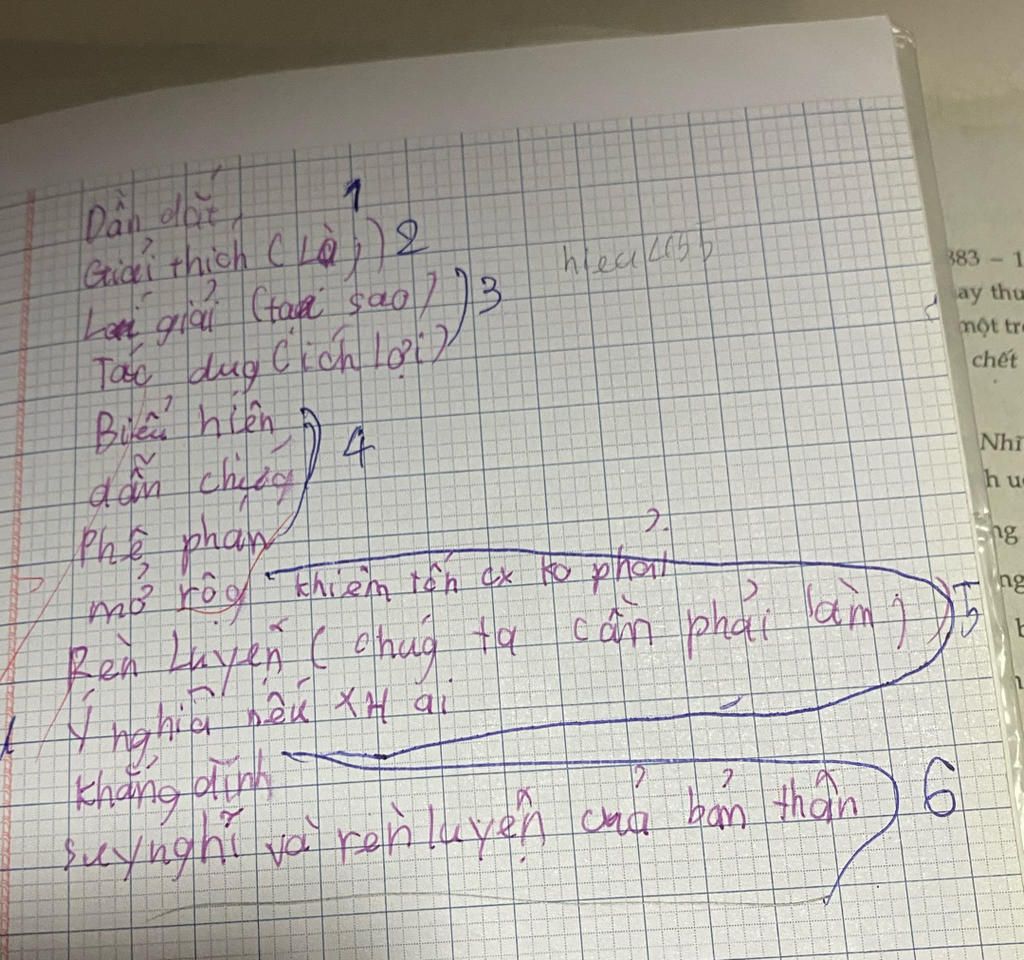 Dẫn dắt 1
Giải thích (Là) 2
Lí giải (tại sao)
Tác dug (ích lợi) 3
Biểu hiện
dẫn chứng 4
Phê phán
mở rộg khiêm tốn cx ko phải
Rèn Luyện (chúg ta cần phải làm) 5
Ý nghĩa nếu XH ai
khẳng định
suy nghĩ và rèn luyện của bản thân 6
383 – 1
ay thu
một tr
chết
Nhĩ
h u
ng
ng